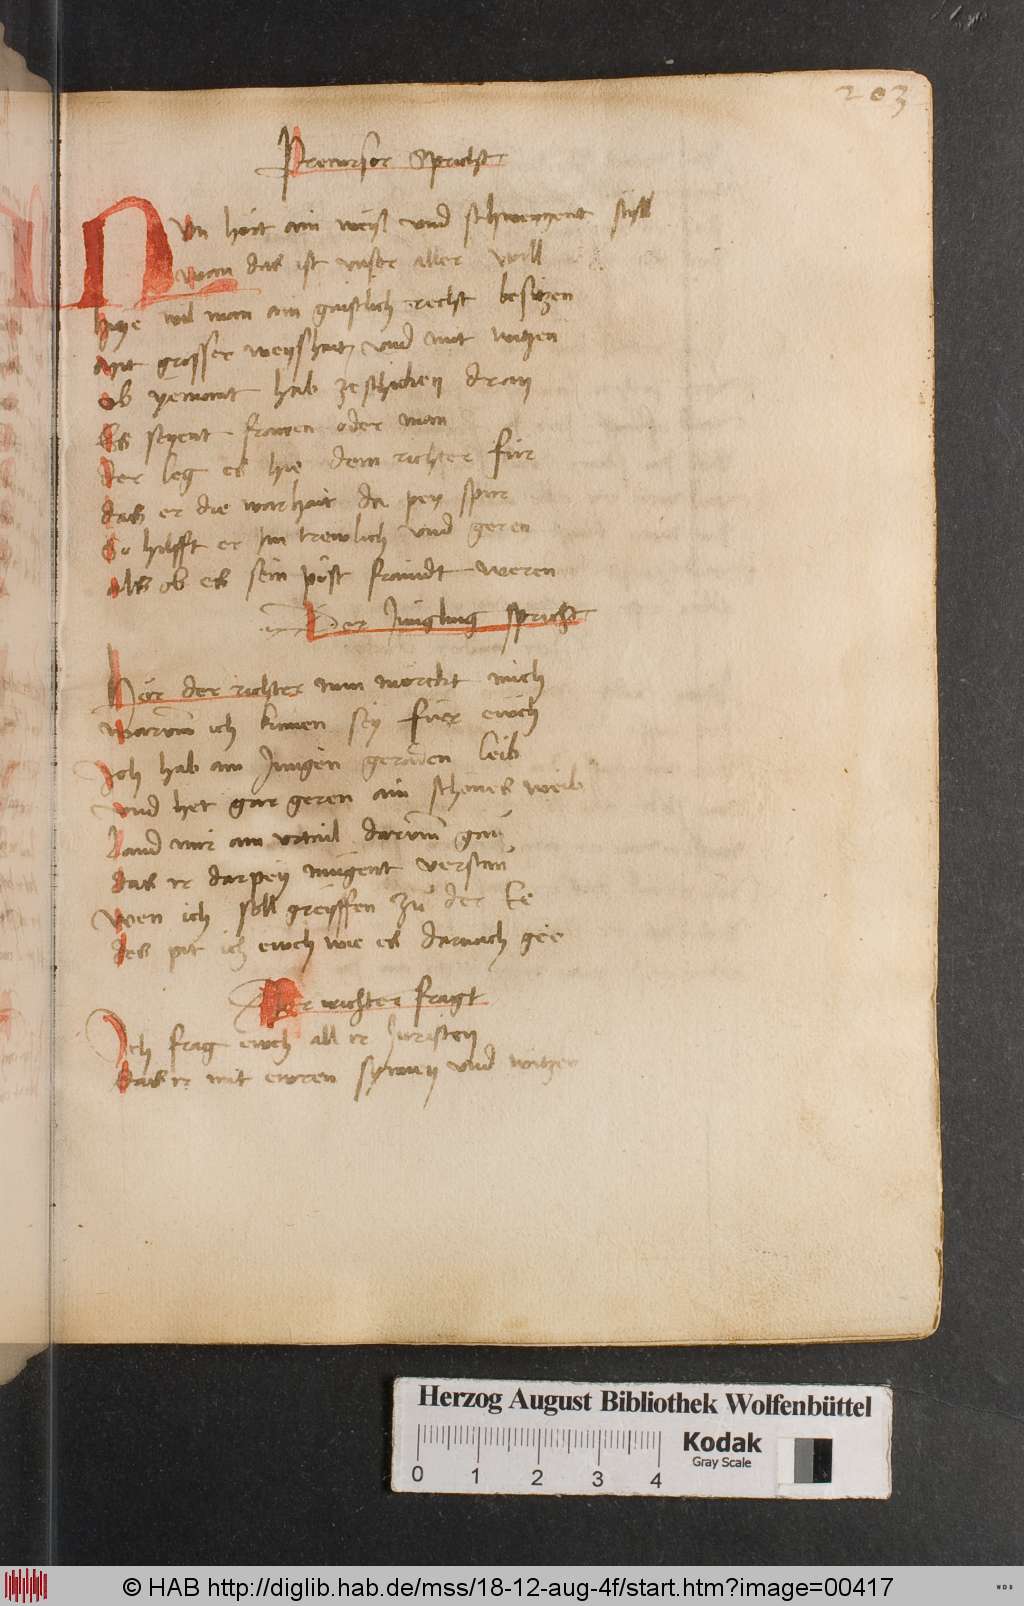 203
Precursor Spricht
Nun hört ain weÿl vnd schweygent still
wan das ist vnser aller will
Hye wil man ain gaistlich recht besitzen
Mit grosser weyshait vnd mit witzen
ob yemant hab ze schicken dran
Es seyent frawen oder man
der leg es hie dem richter für
das er die warhait da pey spür
So hilfft er im trewlich vnd geren
als ob es sein pöst fraindt weren
Der Jüngling spricht
Hör der richter nun mörckt mich
warvmb ich kumen sÿ für ewch
Ich hab ain Jungen geraden leib
vnd het gar geren ain schönes weib
Land mir ain vrtail darvmb gan
das ir darpeÿ mügent verstan
wen ich soll greÿffen zu der Ee
des pit ich ewch wie es darnach gee
Der richter fragt
Ich frag ewch all ir Juristen
das ir mit ewren synnen vnd witzen
Herzog August Bibliothek Wolfenbüttel
Kodak
Gray Scale
0 1 2 3 4
© HAB http://diglib.hab.de/mss/18-12-aug-4f/start.htm?image=00417